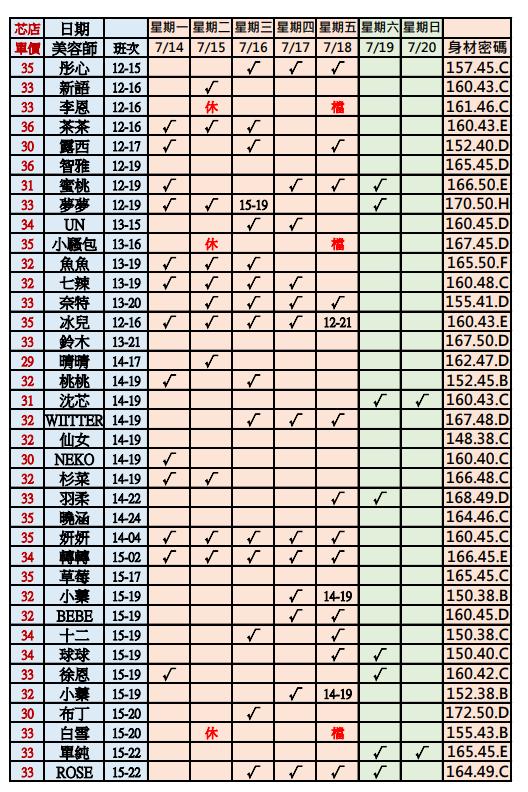 芯店 日期 星期一 星期二 星期三 星期四 星期五 星期六 星期日
單價 美容師 班次 7/14 7/15 7/16 7/17 7/18 7/19 7/20 身材密碼
35 彤心 12-15 √ √ √ 157.45.C
33 新語 12-16 √ 160.43.C
33 李恩 12-16 休 檔 161.46.C
36 茶茶 12-16 √ √ √ 160.43.E
30 露西 12-17 √ √ √ 152.40.D
36 智雅 12-19 165.45.D
31 蜜桃 12-19 √ √ √ √ 166.50.E
33 夢夢 12-19 √ √ 15-19 √ 170.50.H
34 UN 13-15 √ √ 160.45.D
35 小騷包 13-16 休 檔 167.45.D
32 魚魚 13-19 √ √ √ 165.50.F
32 七辣 13-19 √ √ √ √ 160.48.C
33 奈特 13-20 √ √ √ √ 155.41.D
35 冰兒 12-16 √ √ √ √ 12-21 160.43.E
33 鈴木 13-21 167.50.D
29 晴晴 14-17 √ 162.47.D
32 桃桃 14-19 √ √ 152.45.B
31 沈芯 14-19 √ √ 160.43.C
32 WIITTER 14-19 √ √ √ 167.48.D
32 仙女 14-19 148.38.C
30 NEKO 14-19 √ 160.40.C
32 杉菜 14-19 √ √ 166.48.C
33 羽柔 14-22 √ √ 168.49.D
35 曉涵 14-24 164.46.C
35 妍妍 14-04 √ √ √ √ √ 160.45.C
34 轉轉 15-02 √ √ √ √ √ 166.45.E
35 草莓 15-17 165.45.C
32 小蘋 15-19 √ 14-19 150.38.B
32 BEBE 15-19 √ √ 160.45.D
34 十二 15-19 √ √ 150.38.C
34 球球 15-19 √ √ 150.40.C
33 徐恩 15-19 √ √ 160.42.C
32 小 15-19 √ 14-19 152.38.B
30 布丁 15-20 √ 172.50.D
33 白雪 15-20 休 檔 155.43.B
33 單純 15-22 √ √ 165.45.E
33 ROSE 15-22 √ √ √ √ 164.49.C